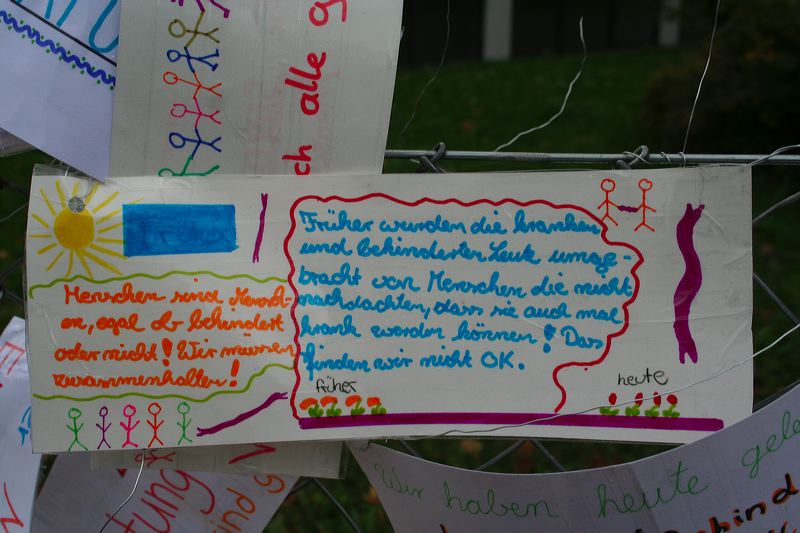 ch alle g
Menschen sind Mensch-
en, egal ob behindert
oder nicht! Wir müssen
zusammenhalten!
Früher wurden die kranken
und behinderten Leute umge-
bracht von Menschen die nicht
nachdachten, dass sie auch mal
krank werden können! Das
finden wir nicht OK.
früher
heute
Wir haben heute gele